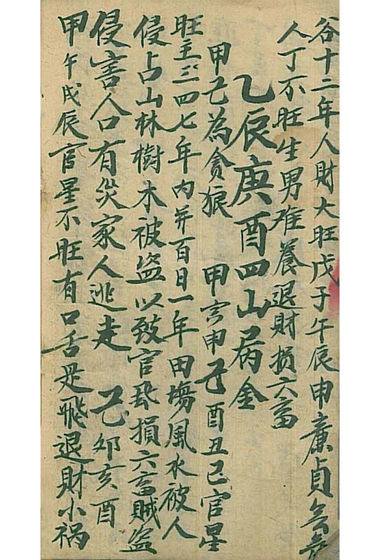 谷十二年人財大旺戊子午辰申廉貞
人丁不旺生男难養退財損六畜
乙辰庚酉四山病金
甲己為貪狼 甲亥申己酉丑己官星
旺主三四七年内并百日一年田塲風水被人
侵占山林樹木被盗以致官司損六畜賊盗
侵害人口有災家人逃走 己卯亥酉
甲午戊辰官星不旺有口舌是飛退財小禍